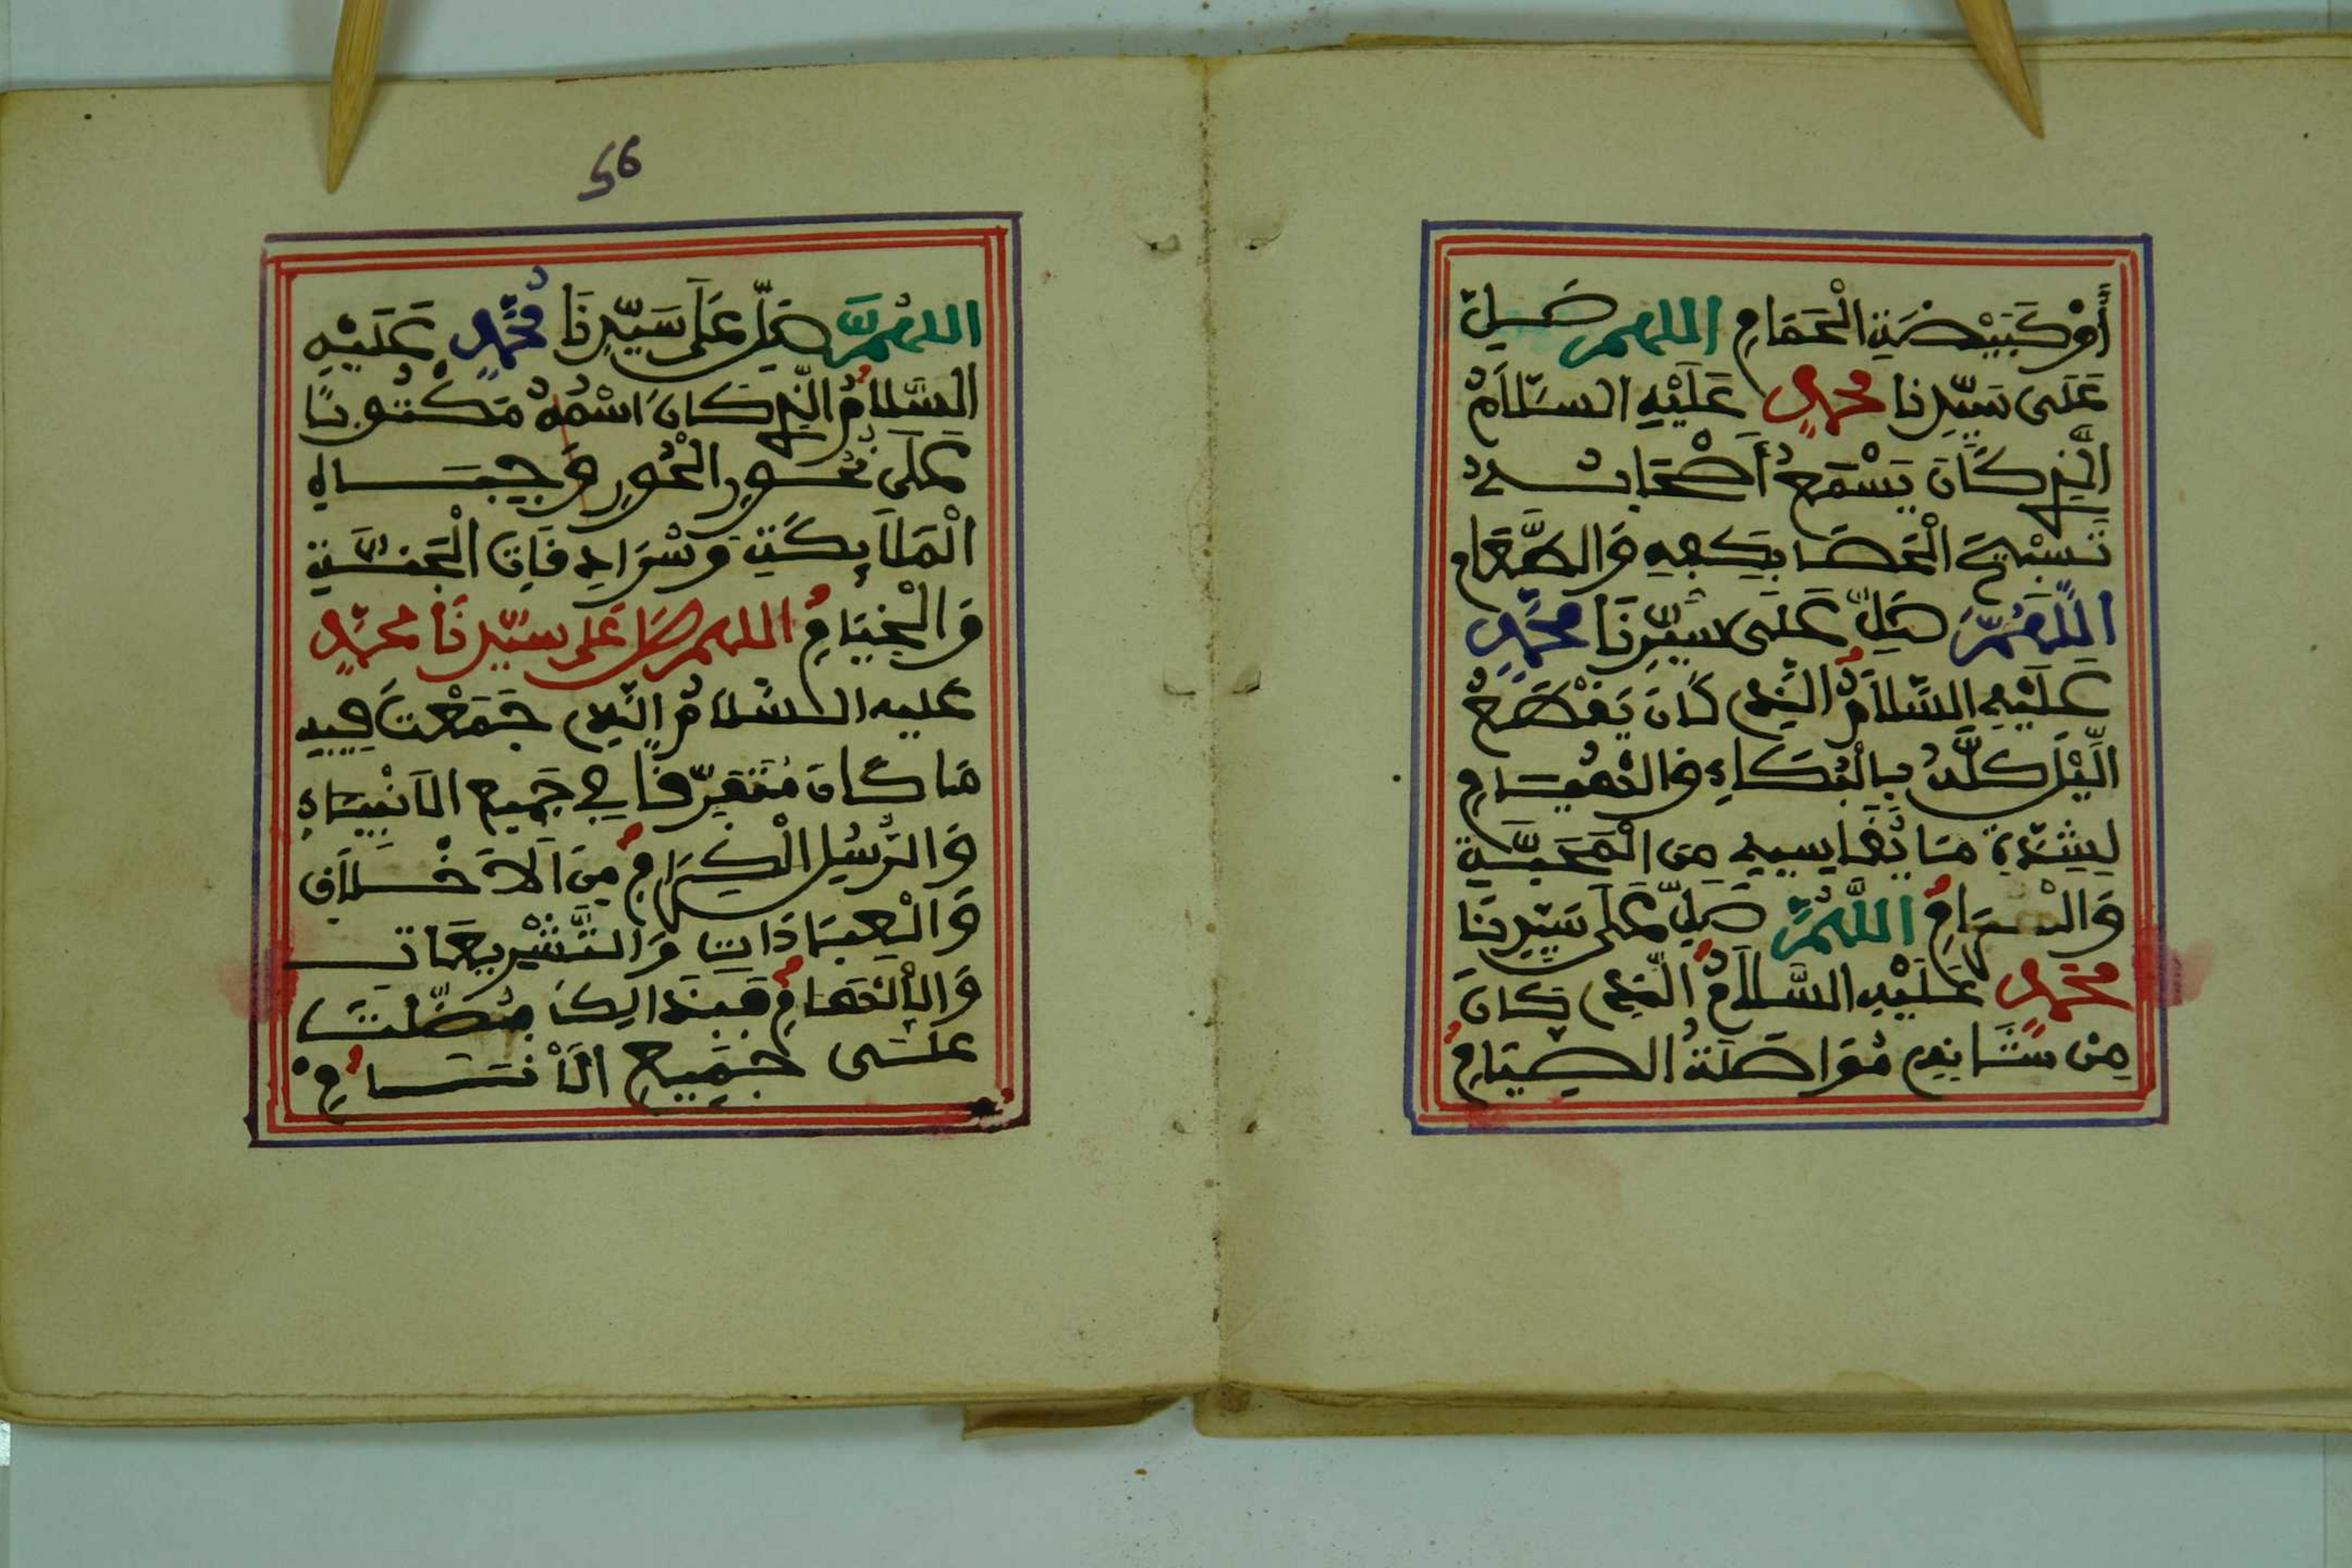 أَوْ كَبَيْضَةِ الْحَمَامِ اللهم صَلِّ
عَلَى سَيِّدِنَا محمدٍ عَلَيْهِ السَّلَامُ
الَّذِي كَانَ يَسْمَعُ أَصْحَابُهُ
تَسْبِيحَ الْحَصَا بِكَفِّهِ وَالطَّعَامِ
اللَّهُمَّ صَلِّ عَلَى سَيِّدِنَا مُحَمَّدٍ
عَلَيْهِ السَّلَامُ الَّذِي كَانَ يَقْطَعُ
الَّيْلَ كُلَّهُ بِالْبُكَاءِ وَالْقِيَامِ
لِشِدَّةِ مَا يُقَاسِيهِ مِنَ الْمَحَبَّةِ
وَالْغَرَامِ اللَّهُمَّ صَلِّ عَلَى سَيِّدِنَا
مُحَمَّدٍ عَلَيْهِ السَّلَامُ الَّذِي كَانَ
مِنْ شَانِهِ مُوَاصَلَةُ الصِّيَامِ
56
اللَّهُمَّ صَلِّ عَلَى سَيِّدِنَا مُحَمَّدٍ عَلَيْهِ
السَّلَامُ الَّذِي كَانَ اسْمُهُ مَكْتُوبًا
عَلَى نُحُورِ الْحُورِ وَجِبَاهِ
الْمَلَائِكَةِ وَسُرَادِقَاتِ الْجَنَّةِ
وَالْخِيَامِ اللهم صل عَلى سيّدِنَا محمّدٍ
عليه السَّلَامُ الَّذِي جَمَعْتَ فِيهِ
مَا كَانَ مُتَفَرِّقًا فِي جَمِيعِ الْأَنْبِيَاءِ
وَالرُّسُلِ الْكِرَامِ مِنَ الْأَخْلَاقِ
وَالْعِبَادَاتِ وَالتَّشْرِيعَاتِ
وَالْإِلْهَامِ فَبِذَالِكَ فَضَّلْتَهُ
عَلَى جَمِيعِ الْأَنَامِ